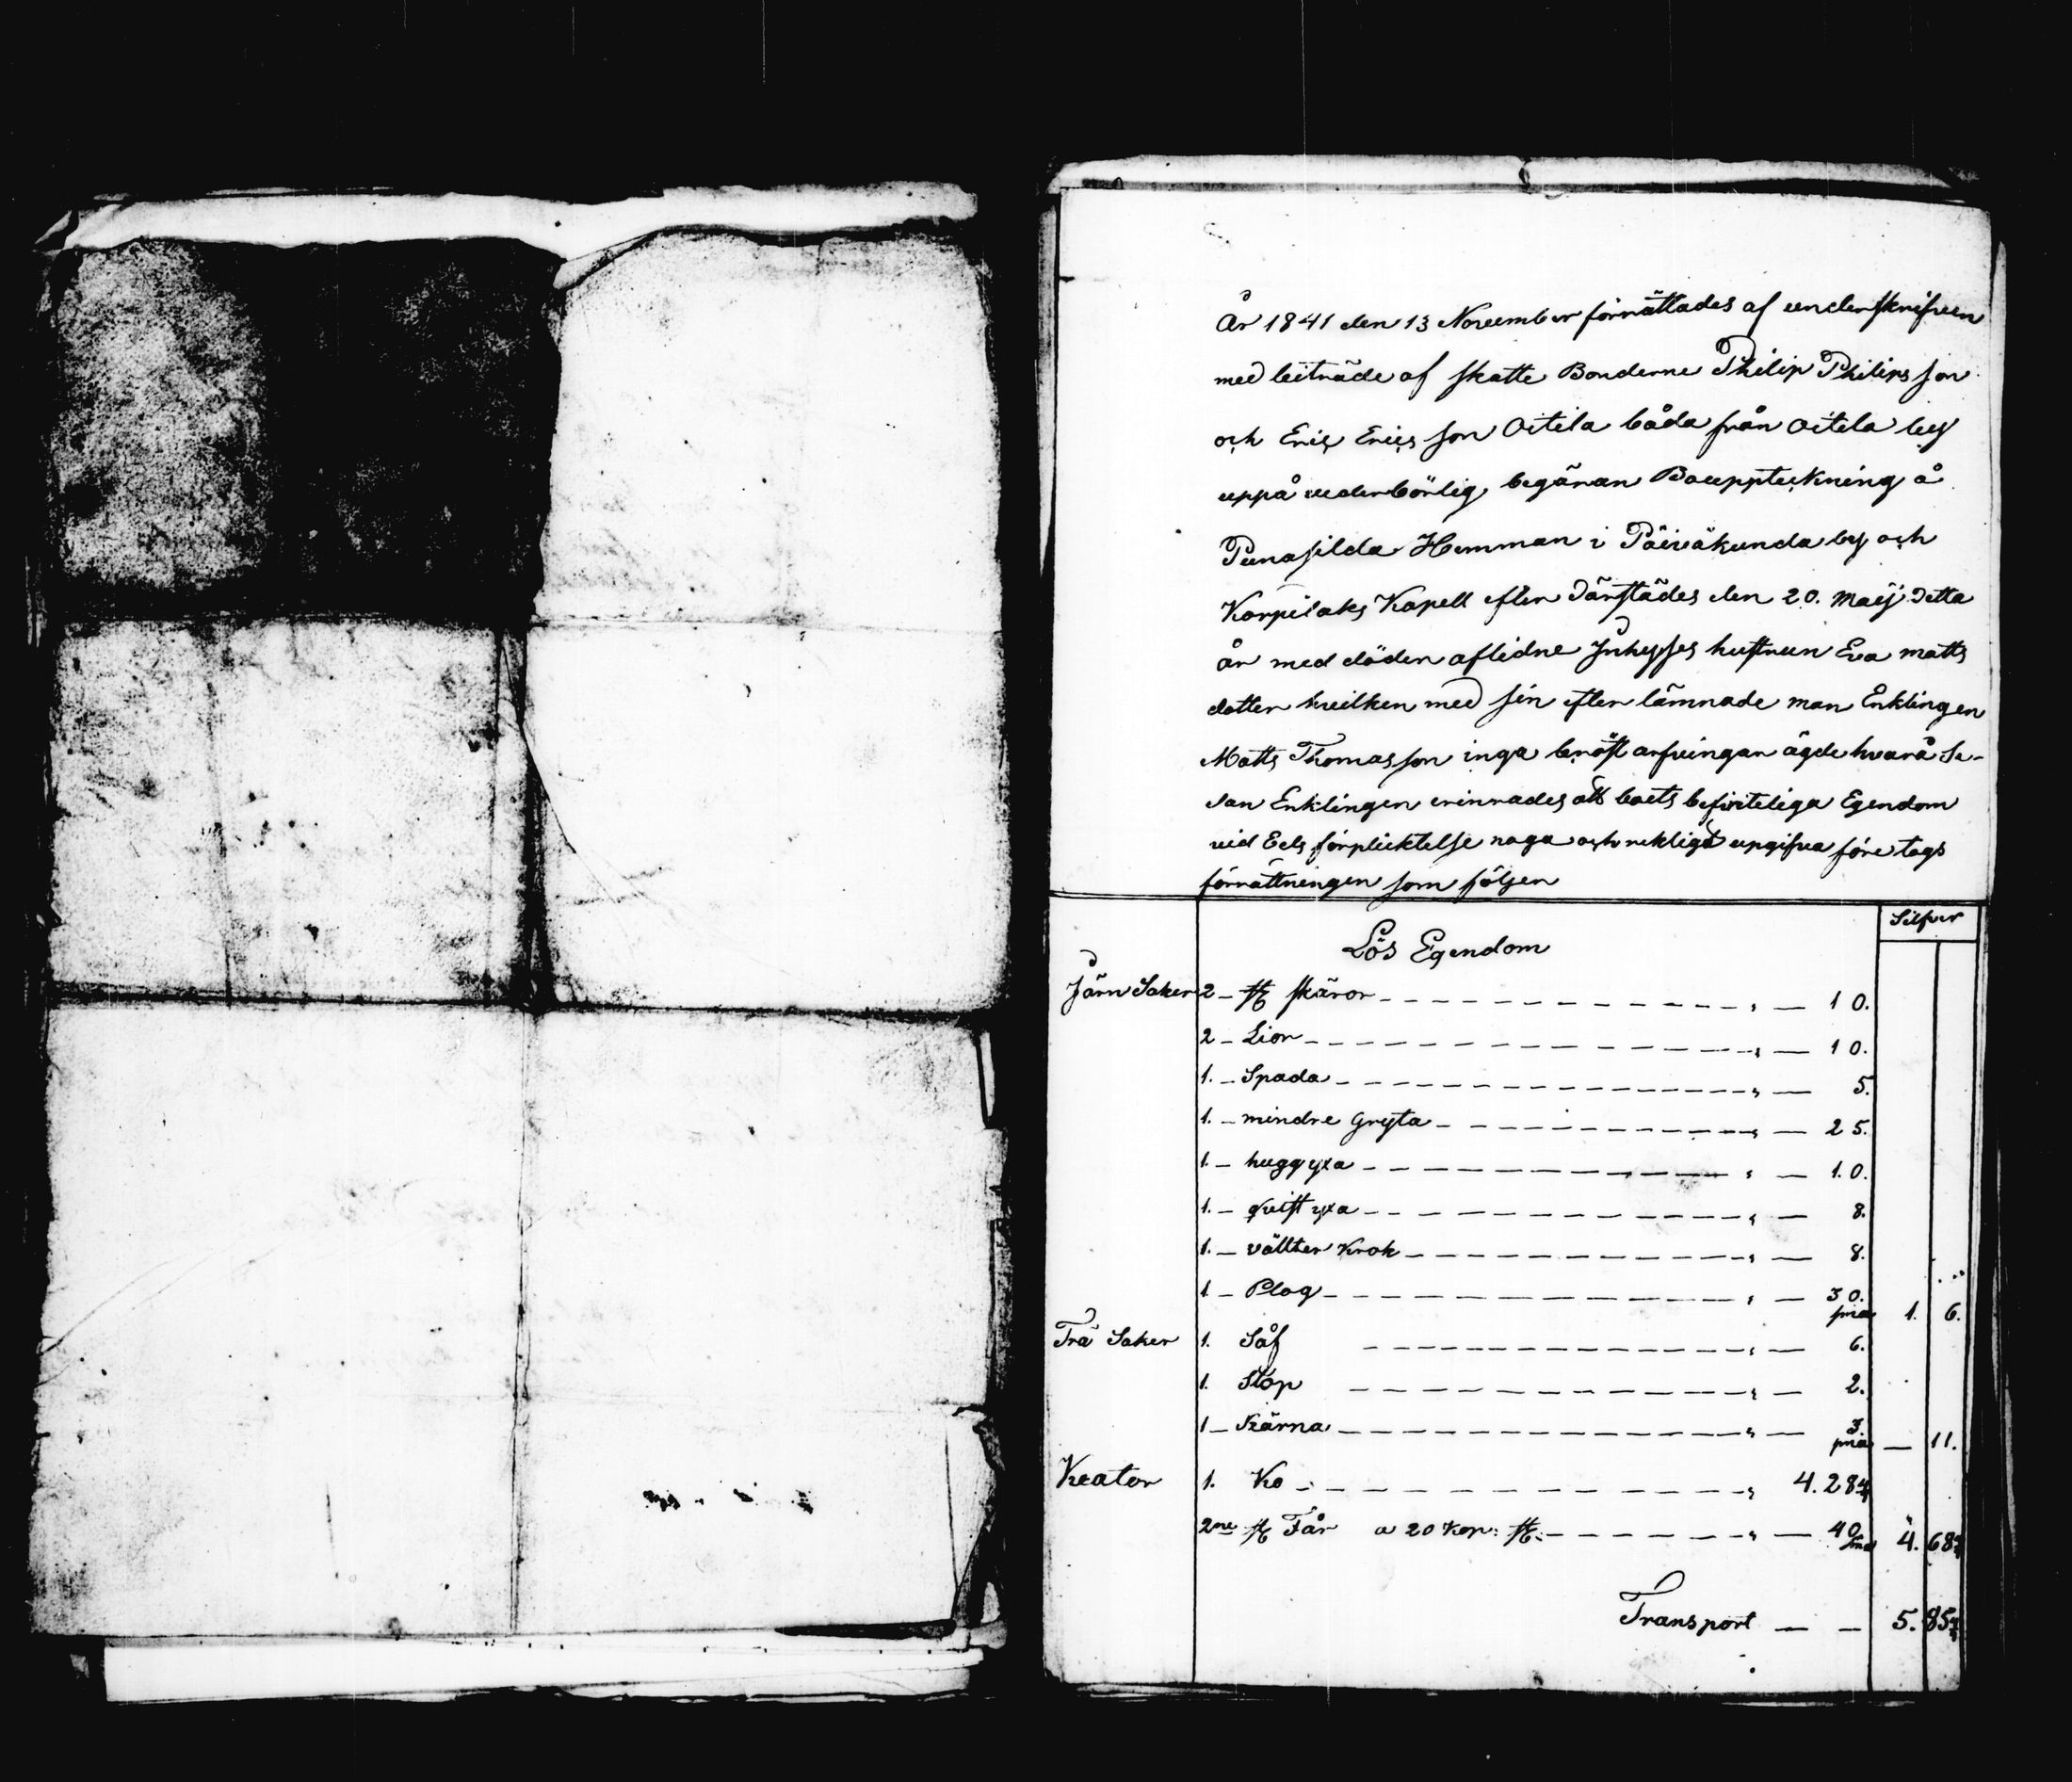 År 1841 den 13 November förrättades af underskrifven
med beiträde af skatte Bonderne Philip Philipsson
och Eric Ericsson Oitila båda från Oitila by
uppå vederbörlig begäran Boupptekning å
Punasilda Hemman i Päiväkunda by och
Korpilaks Kapell efter därstädes den 20. Maij detta
år med döden aflidne Inhyses hustrun Eva matts
dotter hvilken med sin efter lämnade man Enklingen
Matts Thomasson inga bröst arfvingar ägde hvarå Se-
dan Enklingen erinrades att boets befinteliga Egendom
vid Eds förplicktelse noga och ricktigt upgifva före togs
förrättningen som följer
Silfver
Lös Egendom
Järn Saker 2 - st skäror " — 10.
2 - Lior " — 10.
1. - Spada " — 5.
1. - mindre Gryta " — 25.
1. - huggyxa " — 10.
1. - qvist yxa " — 8.
1. - vällter Krok " — 8.
1 - Plog " — 30.
1. 6.
Trä Saker 1. Såf " — 6.
1. Stop " — 2.
1 - Kärna " — 3.
— 11.
Kreatur 1. Ko " 4. 28 4/7
2ne st Får a 20 kop: st: " — 40 4. 68 4/7
Transport — — 5. 85 4/7